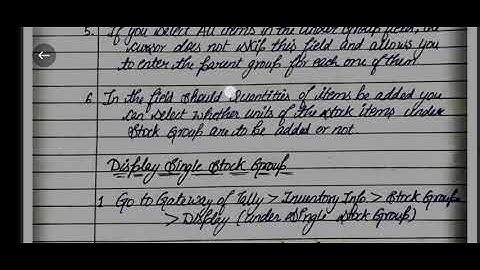 5. If you select All items in the under Group field, the
cursor does not skip this field and allows you
to enter the parent group for each one of them
6 In the field should Quantities of items be added you
can select whether units of the stock items under
Stock Group are to be added or not.
Display Single Stock Group
1 Go to Gateway of Tally > Inventory Info > Stock Group
> Display (under Single Stock Group)